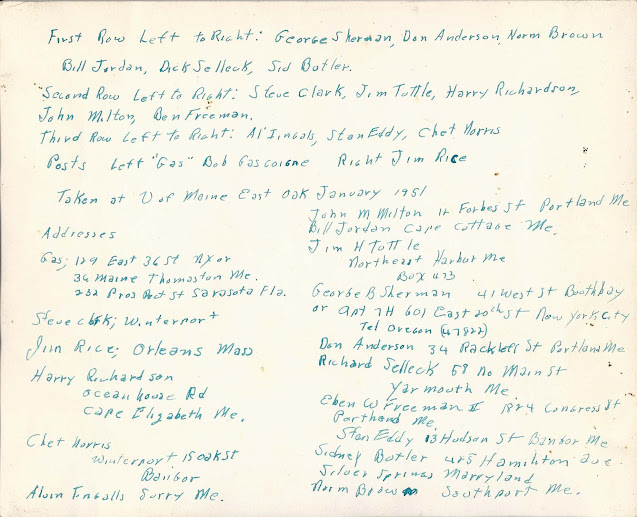 First Row Left to Right: George Sherman, Don Anderson, Norm Brown
Bill Jordan, Dick Selleck, Sid Butler.
Second Row Left to Right: Steve Clark, Jim Tuttle, Harry Richardson,
John Milton, Ben Freeman.
Third Row Left to Right: Al Ingals, Stan Eddy, Chet Norris
Posts Left "Gas" Bob Gascoigne Right Jim Rice
Taken at U of Maine East Oak January 1951
Addresses
Gas; 129 East 36 St NY or
36 Maine Thomaston Me.
232 Prospect St Sarasota Fla.
Steve Clark; Winterport
Jim Rice; Orleans Mass
Harry Richardson
Ocean house Rd
Cape Elizabeth Me.
Chet Norris
Winterport 15 Oak St
Bangor
Alvin Ingalls Surry Me.
John M Milton 12 Forbes St Portland Me
Bill Jordan Cape Cottage Me.
Jim H Tuttle
Northeast Harbor Me
Box 473
George B Sherman 41 West St Boothbay
or Apt 7H 601 East 20th St New York City
Tel Oregon (47822)
Don Anderson 34 Rackleff St Portland Me
Richard Selleck 58 No Main St
Yarmouth Me
Eben W Freeman II 1824 Congress St
Portland Me
Stan Eddy 13 Hudson St Bangor Me
Sidney Butler 425 Hamilton ave
Silver Springs Marryland
Norm Brown Southport Me.